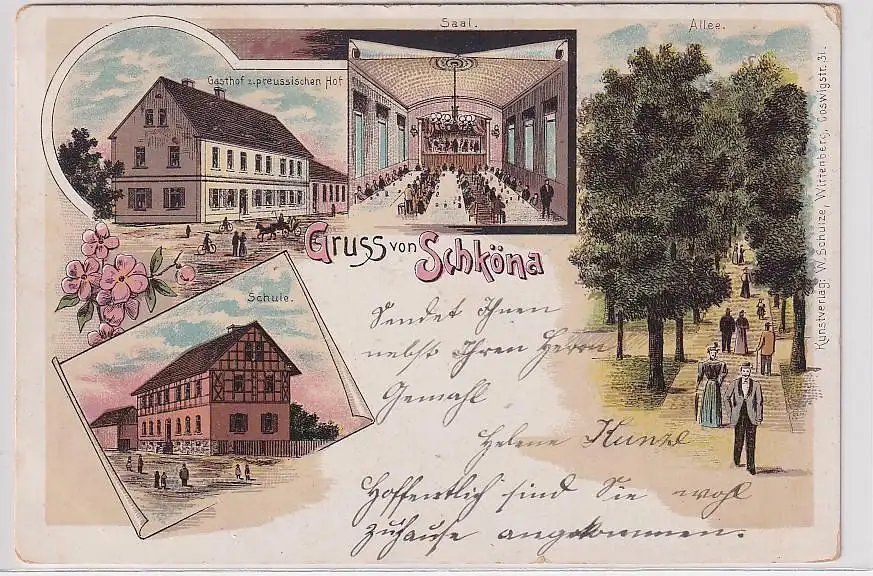 Saal.
Allee.
Gasthof z. preussischen Hof
Gruss von Schköna
Schule.
Sendet Ihnen
nebst Ihren Herrn
Gemahl
Helene Kunze
Hoffentlich sind Sie wohl
zuhause angekommen.
Kunstverlag: W. Schulze, Wittenberg, Coswigstr. 31.